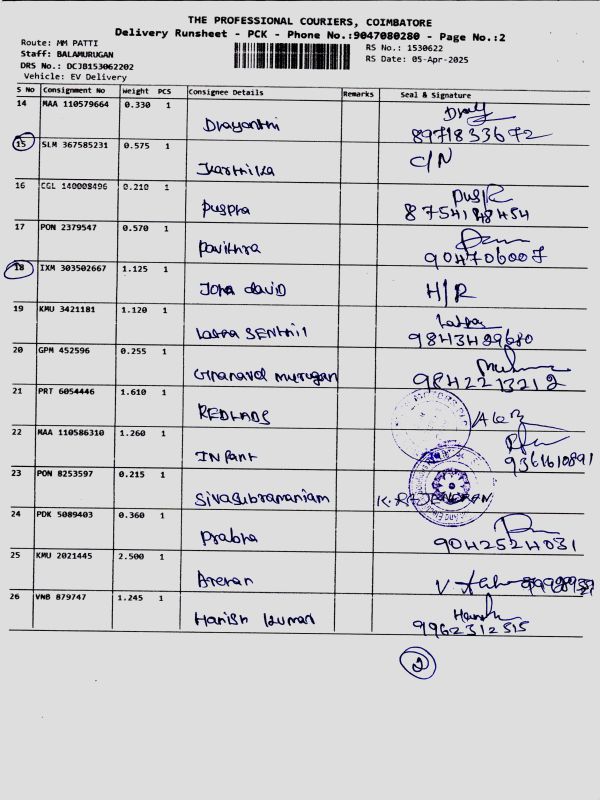 THE PROFESSIONAL COURIERS, COIMBATORE
Delivery Runsheet - PCK - Phone No.:9047080280 - Page No.:2
Route: MM PATTI
RS No.: 1530622
Staff: BALAMURUGAN
RS Date: 05-Apr-2025
DRS No.: DCJB153062202
Vehicle: EV Delivery
S No Consignment No Weight PCS Consignee Details Remarks Seal & Signature
14 MAA 110579664 0.330 1
Drayanthi 8971833672
15 SLM 367585231 0.575 1 C/N
Karthika
16 CGL 140008496 0.210 1
Puspha 8754148454
17 PON 2379547 0.570 1
Pavithra 904706007
18 IXM 303502667 1.125 1
John david H/R
19 KMU 3421181 1.120 1
Lathra SENTHIL 9843489680
20 GPM 452596 0.255 1
Gnanavel murugan 9842213212
21 PRT 6054446 1.610 1
REDLADS
22 MAA 110586310 1.260 1
INFANT 9361610891
23 PON 8253597 0.215 1
Sivasubramaniam K. RAJENDRAN
24 PDK 5089403 0.360 1
Prabha 9042524031
25 KMU 2021445 2.500 1
26 VNB 879747 1.245 1
Harish kumar 9962312515
2